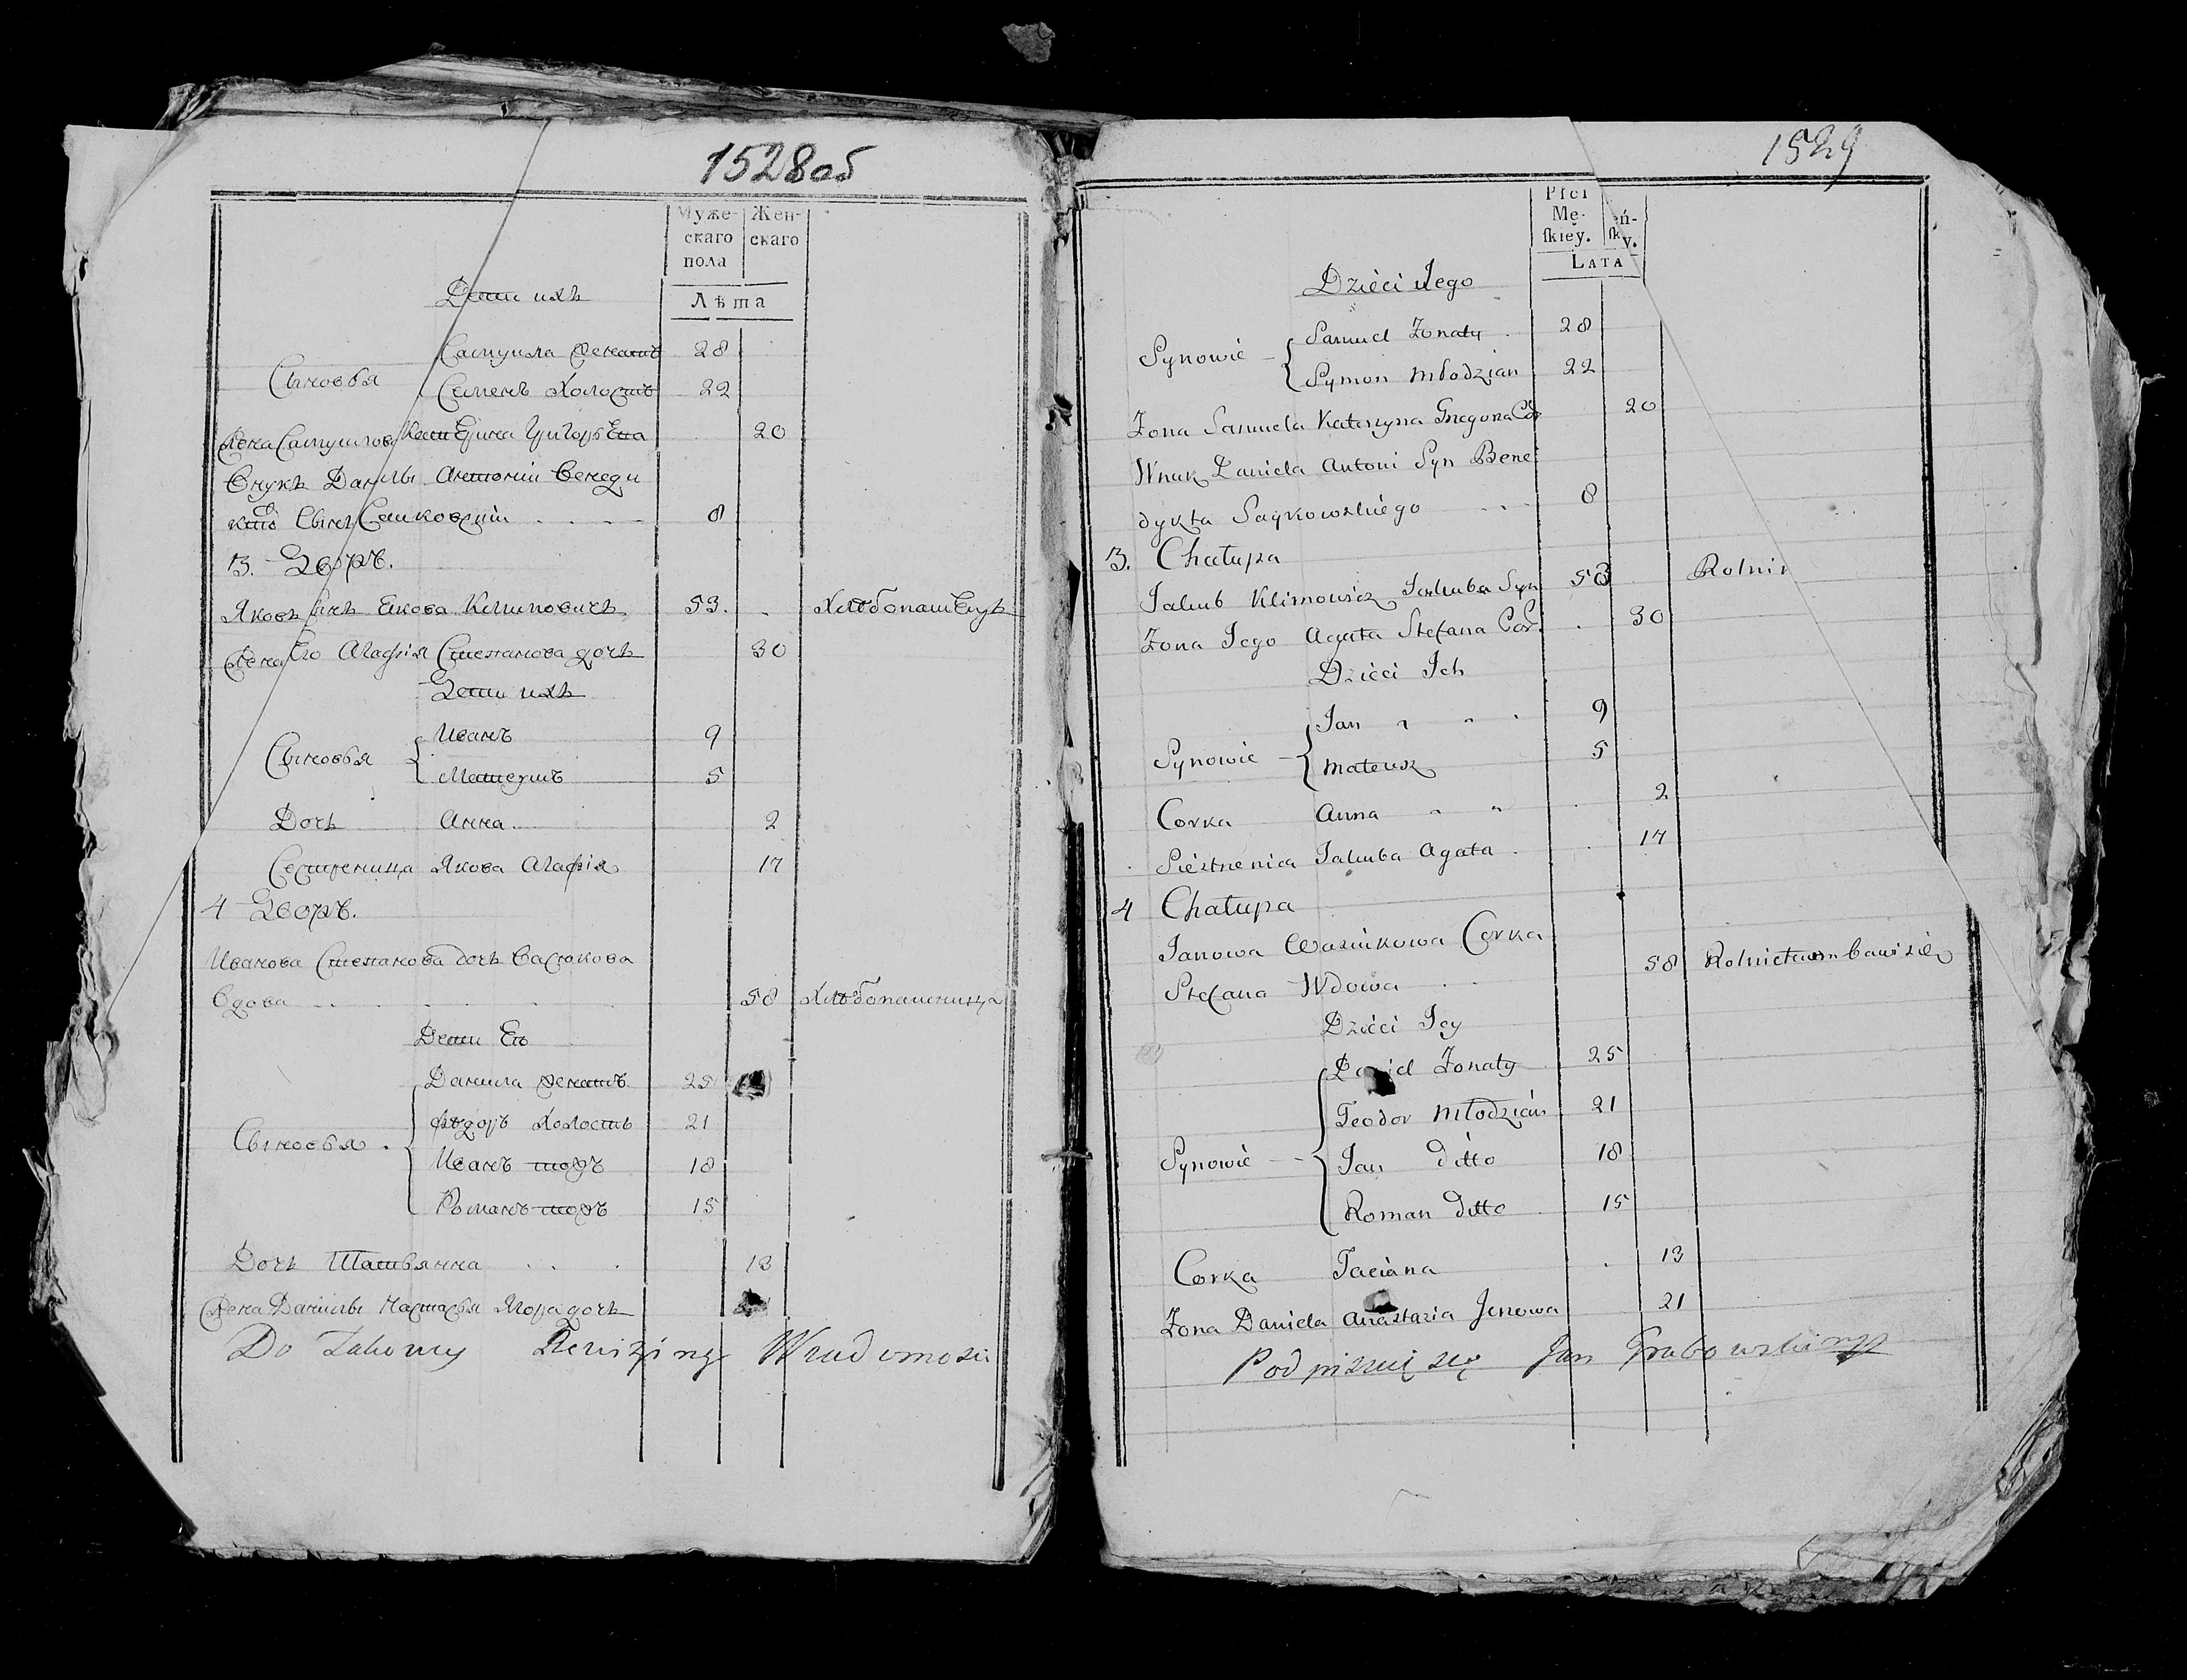 1528об
Муже-
скаго
пола
Жен-
скаго
Лѣта
Дети ихъ
Сыновья
Самуила женатъ 28
Семенъ Холостъ 22
Жена Самуилова Катерина Григорьева 20
Внукъ Данилы Антоній Бенеди
кта Сынъ Сайковскій 8
3. Дворъ.
Яковъ Сынъ Якова Климовичъ 53. Хлѣбопашецъ
Жена Его Агафія Степанова дочь 30
Дети ихъ
Сыновья
Иванъ 9
Матеушъ 5
Дочь Анна 2
Сестреница Якова Агафія 17
4 Дворъ.
Иванова Степанова дочь Васюкова
Вдова 58 Хлѣбопашеница
Дети Ея
Данила женатъ 25
Ѳедоръ Холостъ 21
Сыновья
Иванъ тожъ 18
Романъ тожъ 15
Дочь Татьянна 13
Жена Данилы Настасья дочь
Do Takowey Rewizyiney Wiadomosci
1529
Płci
Mę-
ſkiey.
eń-
ſkiy.
LATA
Dzieci Jego
Synowie
Samuel Żonaty 28
Symon Młodzian 22
Żona Samuela Katerzyna Gregora Cór 20
Wnuk Daniela Antoni Syn Bene
dykta Saykowskiego 8
3. Chałupa
Jakub Klimowicz Jakuba Syn 53 Rolnik
Żona Jego Agata Stefana Cór. 30
Dzieci Ich
Synowie
Jan 9
Mateusz 5
Corka Anna 2
Siestrzenica Jakuba Agata 17
4 Chałupa
Janowa Wasiukowa Corka
Stefana Wdowa 58 Rolnictwem bawi się
Dzieci Jey
Daniel Żonaty 25
Teodor Młodzian 21
Synowie
Jan ditto 18
Roman ditto 15
Corka Taciana 13
Żona Daniela Anastazia 21
Podpisuię się Jan Grabowski